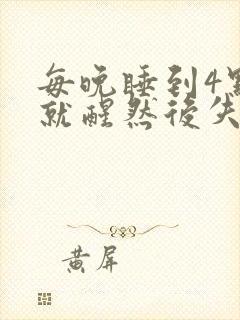 每晚睡到4點
就醒然後失
黃屏